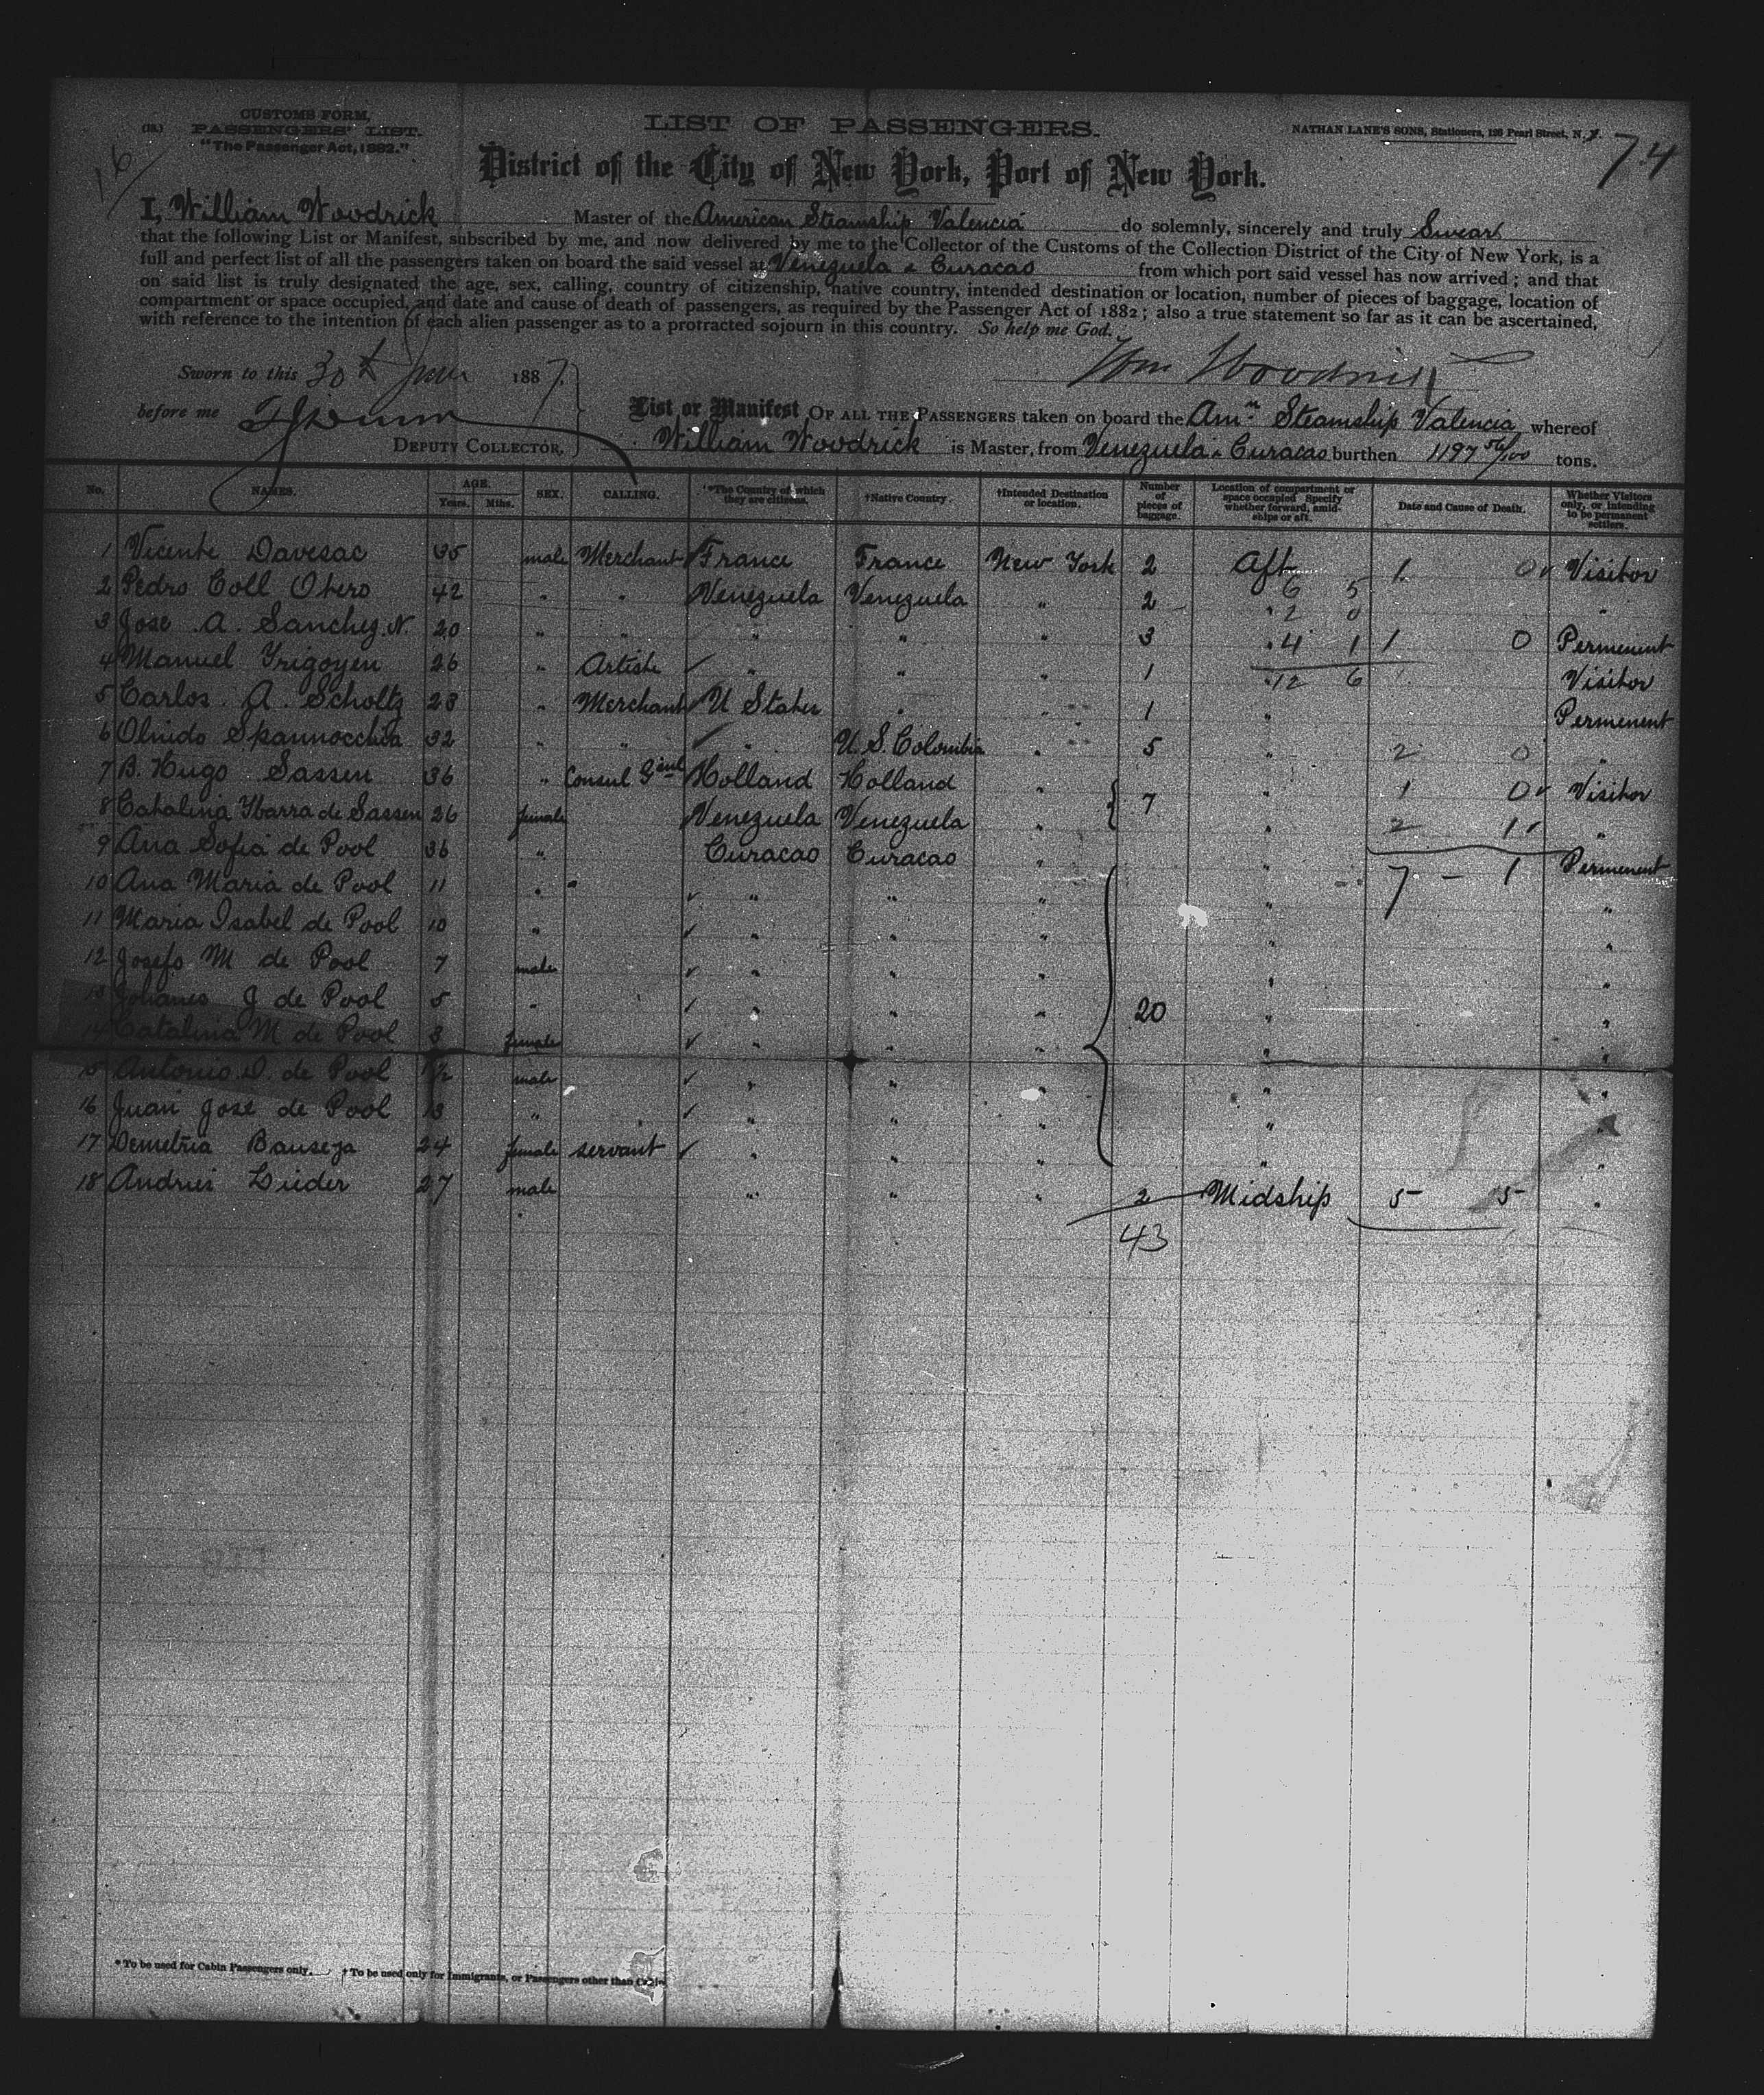 CUSTOMS FORM,
PASSENGERS' LIST.
"The Passenger Act, 1882."
LIST OF PASSENGERS.
NATHAN LANE'S SONS, Stationers, Pearl Street, N. Y.
74
16
District of the City of New York, Port of New York.
I, William Woodrick Master of the American Steamship Valencia do solemnly, sincerely and truly Swear
that the following List or Manifest, subscribed by me, and now delivered by me to the Collector of the Customs of the Collection District of the City of New York, is a
full and perfect list of all the passengers taken on board the said vessel at Venezuela & Curacao from which port said vessel has now arrived; and that
on said list is truly designated the age, sex, calling, country of citizenship, native country, intended destination or location, number of pieces of baggage, location of
compartment or space occupied, and date and cause of death of passengers, as required by the Passenger Act of 1882; also a true statement so far as it can be ascertained,
with reference to the intention of each alien passenger as to a protracted sojourn in this country. So help me God.
Wm Woodrick
Sworn to this 30th 1887,
before me
DEPUTY COLLECTOR,
List or Manifest OF ALL THE PASSENGERS taken on board the Amn Steamship Valencia whereof
William Woodrick is Master, from Venezuela & Curacao burthen 1197 56/100 tons.
No. NAMES. AGE. Years. Mths. SEX. CALLING. *The Country of which they are citizens. †Native Country. †Intended Destination or location. Number of pieces of baggage. Location of compartment or space occupied Specify whether forward, amidships or aft. Date and Cause of Death. Whether Visitors only, or intending to be permanent settlers.
1 Vicente Davesac 35 male Merchant France France New York 2 Aft 1 0 Visitor
2 Pedro Coll Otero 42 " " Venezuela Venezuela " 2 6 5 "
3 Jose A. Sanchez N. 20 " " " " " 3 " 4 1 1 0 Permenent
4 Manuel Yrigoyen 26 " Artiste " " " 1 " 12 6 Visitor
5 Carlos A. Scholtz 28 " Merchant U States " " 1 " Permenent
6 Olindo Spannocchia 32 " " " U. S. Colombia " 5 " 2 0 "
7 B. Hugo Sassen 36 " Consul Genl Holland Holland " 7 " 1 0 Visitor
8 Catalina Ybarra de Sassen 26 female Venezuela Venezuela " " 2 1 "
9 Ana Sofia de Pool 36 " Curacao Curacao " " 7 - 1 Permenent
10 Ana Maria de Pool 11 " " " " " "
11 Maria Isabel de Pool 10 " " " " " "
12 Josefo M de Pool 7 male " " " " "
13 Johanes J de Pool 5 " " " " 20 " "
14 Catalina M de Pool 3 female " " " " "
15 Antonio D. de Pool 1½ male " " " " "
16 Juan Jose de Pool 13 " " " " " "
17 Demetria 24 female servant " " " " "
18 Andries Luider 27 male " " " 2 Midship 5 5 "
43
* To be used for Cabin Passengers only. † To be used only for Immigrants, or Passengers other than Cabin.